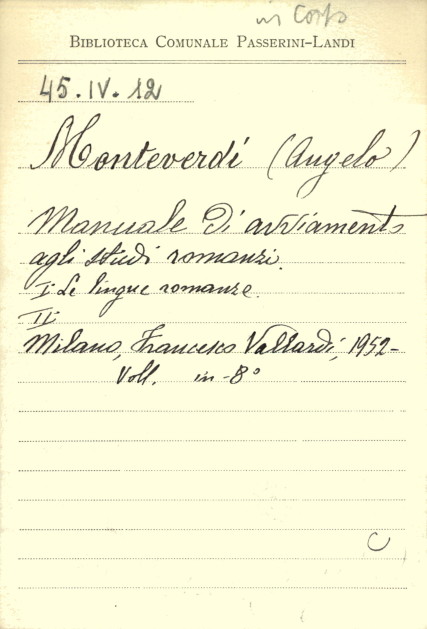 in Corso
BIBLIOTECA COMUNALE PASSERINI-LANDI
45.IV.12
Monteverdi (Angelo)
Manuale di avviamento
agli studi romanzi.
I: Le lingue romanze.
II:
Milano, Francesco Vallardi, 1952-
Voll. in-8°
C